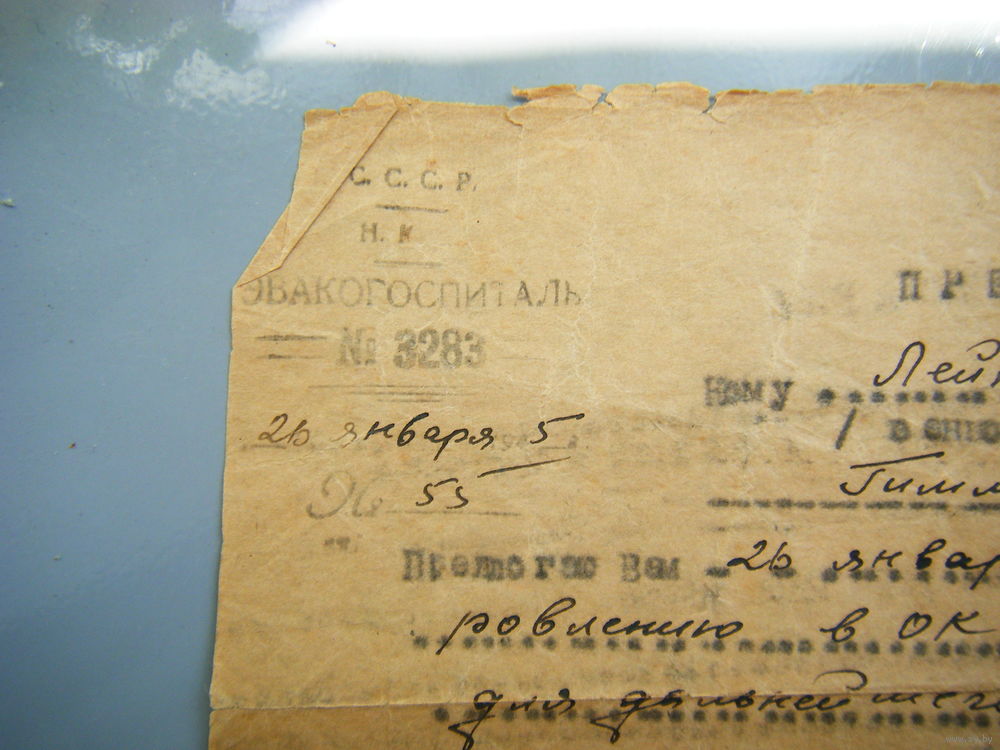 С. С. С. Р.
Н. К
ЭВАКОГОСПИТАЛЬ
№ 3283
26 января 5
№ 55
ПРЕ
Кому Лей
Гимм
Предлогаю Вам 26 январ
ровлению в ОК
для дальнейшего
www.ay.by